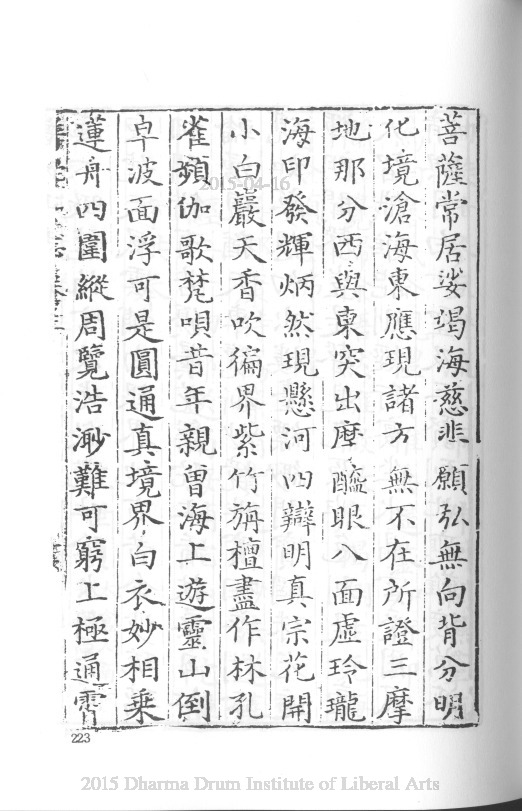 菩薩常居娑竭海慈悲願弘無向背分明
化境滄海東應現諸方無不在所證三摩
地那分西與東突出摩醯眼八面虛玲瓏
海印發輝炳然現懸河四辯明真宗花開
小白巖天香吹徧界紫竹旃檀盡作林孔
雀頻伽歌梵唄昔年親曾海上遊靈山倒
卓波面浮可是圓通真境界白衣妙相乘
蓮舟四圍縱周覽浩渺難可窮上極通霄
2015-04-16
223
2015 Dharma Drum Institute of Liberal Arts